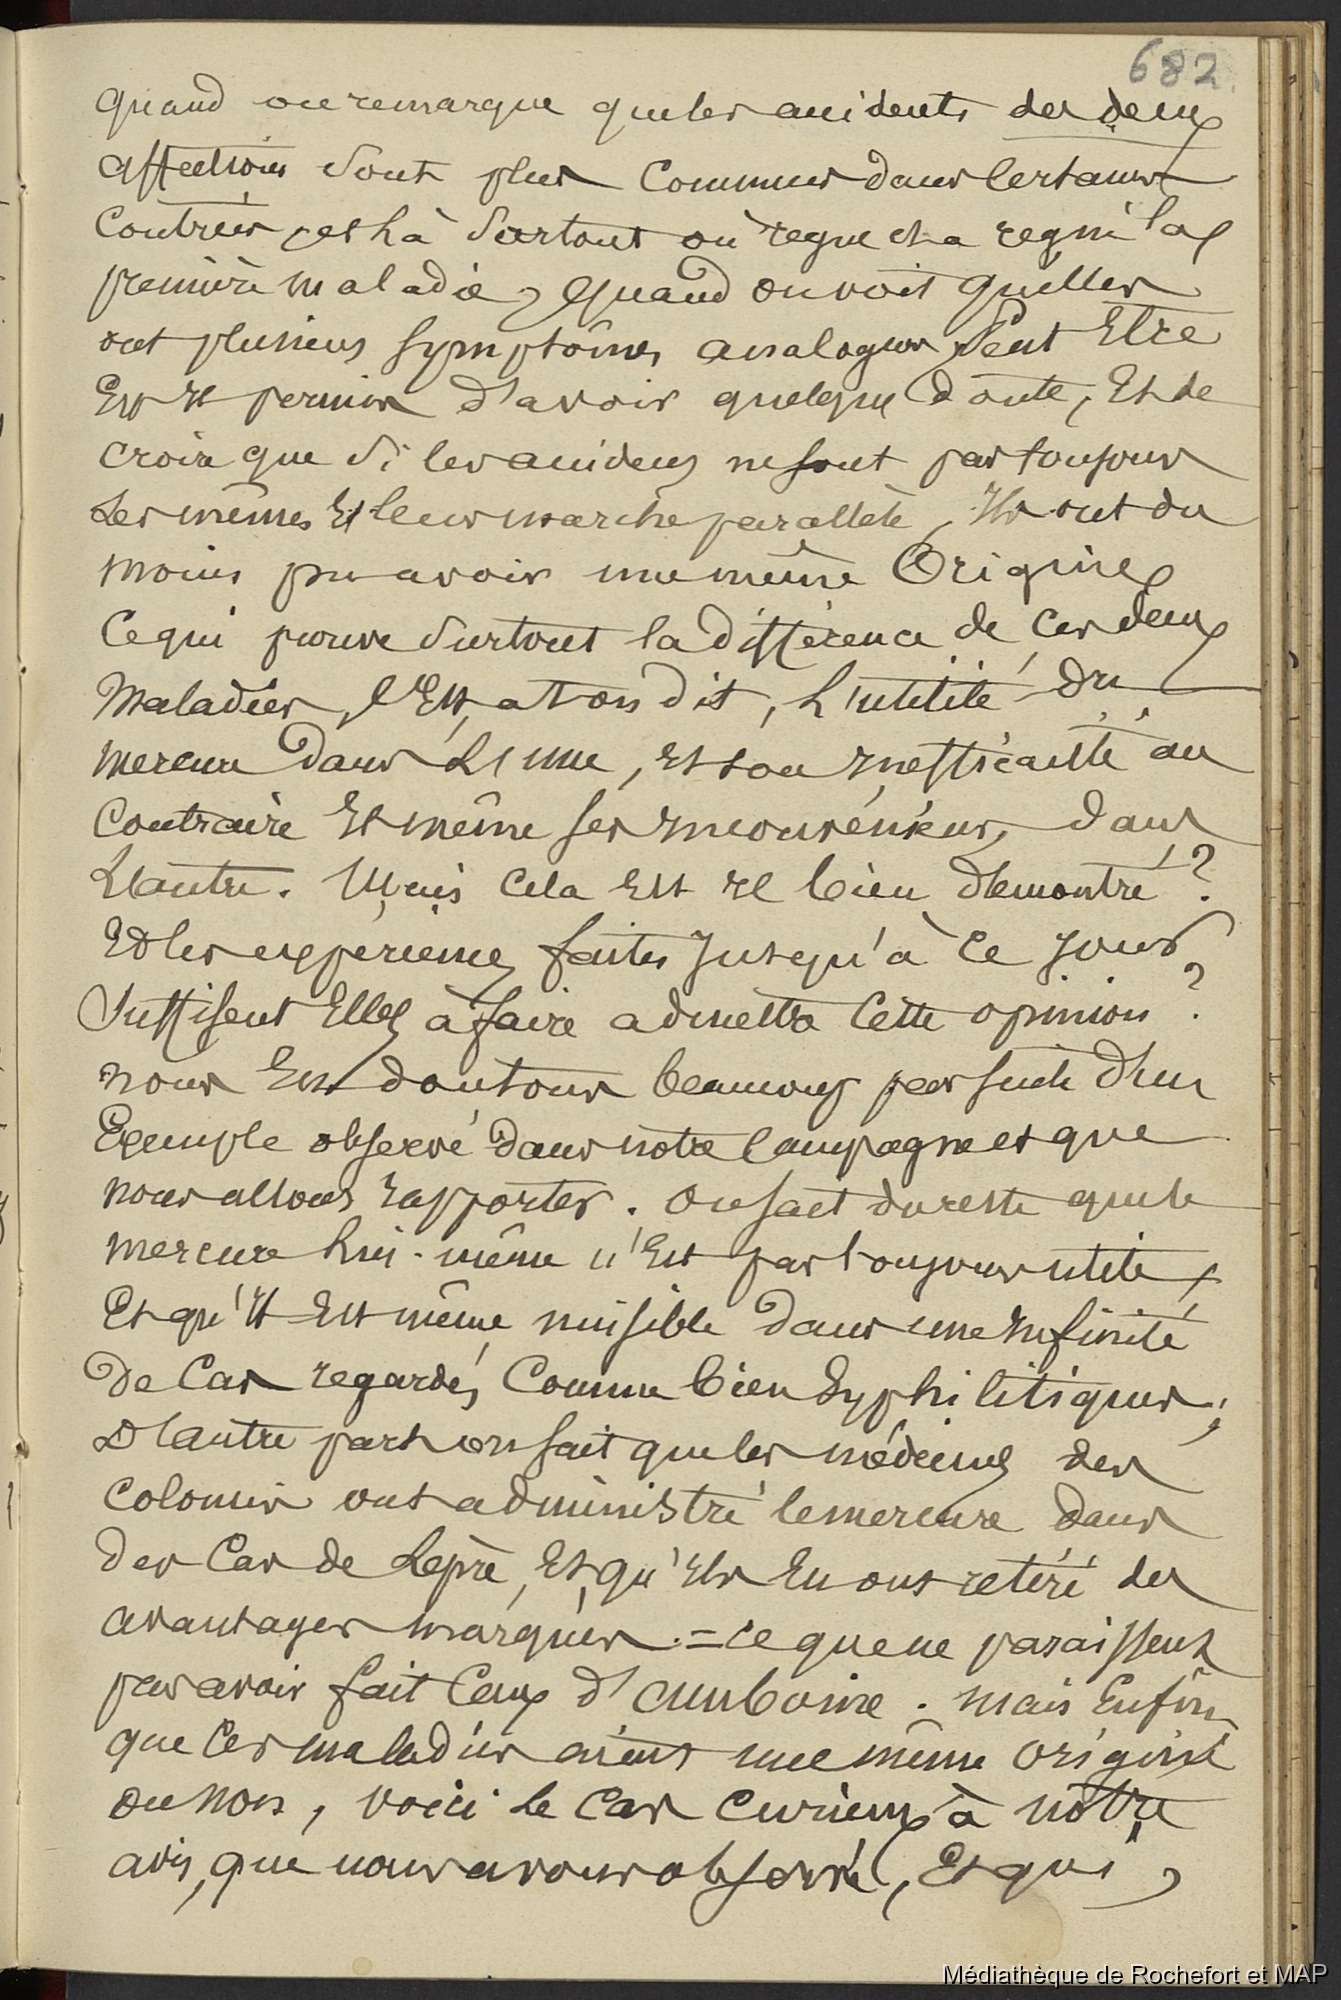 682
quand on remarque que les accidents des deux
affections sont plus communs dans certaines
contrées, et là surtout où règne et a regné la
première maladie, quand on voit qu'elles
ont plusieurs symptômes analogues, peut être
est il permis d'avoir quelque doute, et de
croire que si les accidens ne sont pas toujours
les mêmes et leur marche parallèle, ils ont du
moins pu avoir une même origine
Ce qui prouve surtout la différence de ces deux
maladies, c'est, a t on dit, l'utilité du
mercure dans l'une, et son inefficacité au
contraire et même ses inconvéniens, dans
l'autre. Mais cela est il bien démontré ?
et les expériences faites jusqu'à ce jour
suffisent elles à faire admettre cette opinion ?
nous en doutons beaucoup par suite d'un
exemple observé dans notre campagne et que
nous allons rapporter. On sait du reste que le
mercure lui-même n'est pas toujours utile
et qu'il est même nuisible dans une infinité
de cas regardés comme bien syphilitiques ;
d'autre part on sait que les médecins des
colonies ont administré le mercure dans
des cas de lèpre, et qu'ils en ont retiré des
avantages marqués. = ce que ne paraissent
pas avoir fait ceux d'amboine. mais enfin
que ces maladies aient une même origine
ou non, voici le cas curieux à notre
avis, que nous avons observé, et qui,
Médiathèque de Rochefort et MAP